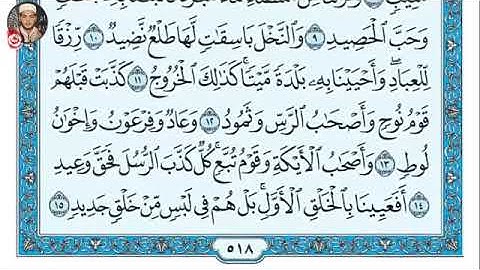 وَحَبَّ ٱلْحَصِيدِ ٩ وَٱلنَّخْلَ بَاسِقَٰتٍ لَّهَا طَلْعٌ نَّضِيدٌ ١٠ رِّزْقًا
لِّلْعِبَادِ ۖ وَأَحْيَيْنَا بِهِۦ بَلْدَةً مَّيْتًا ۚ كَذَٰلِكَ ٱلْخُرُوجُ ١١ كَذَّبَتْ قَبْلَهُمْ
قَوْمُ نُوحٍ وَأَصْحَٰبُ ٱلرَّسِّ وَثَمُودُ ١٢ وَعَادٌ وَفِرْعَوْنُ وَإِخْوَٰنُ
لُوطٍ ١٣ وَأَصْحَٰبُ ٱلْأَيْكَةِ وَقَوْمُ تُبَّعٍ ۚ كُلٌّ كَذَّبَ ٱلرُّسُلَ فَحَقَّ وَعِيدِ
١٤ أَفَعَيِينَا بِٱلْخَلْقِ ٱلْأَوَّلِ ۚ بَلْ هُمْ فِى لَبْسٍ مِّنْ خَلْقٍ جَدِيدٍ ١٥
٥١٨